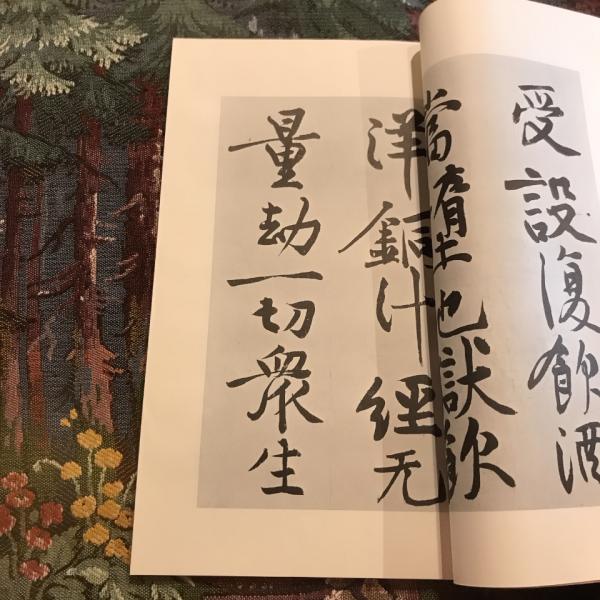 受設復飲酒
當墮地獄飲
洋銅汁經无
量劫一切衆生